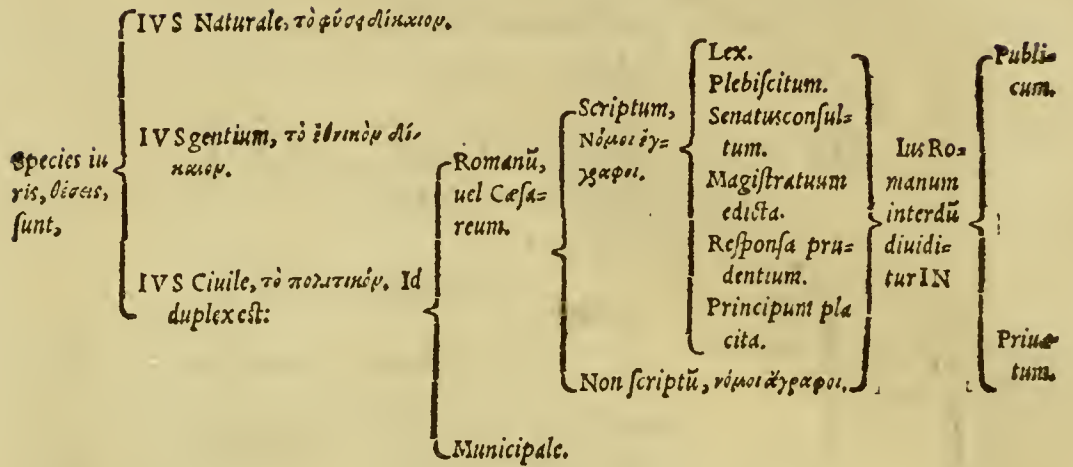 Species iu
ris, θέσεις,
sunt,
IVS Naturale, τὸ φύσει δίκαιον.
IVS gentium, τὸ ἐθνικὸν δί-
καιον.
IVS Ciuile, τὸ πολιτικόν. Id
duplex est:
Romanū,
uel Cæsa=
reum.
Municipale.
Scriptum,
Νόμοι ἔγ=
γραφοι.
Non scriptū, νόμοι ἄγραφοι.
Lex.
Plebiscitum.
Senatusconsul=
tum.
Magistratuum
edicta.
Responsa pru=
dentium.
Principum pla
cita.
Ius Ro=
manum
interdū
diuidi=
tur IN
Publi=
cum.
Priua=
tum.